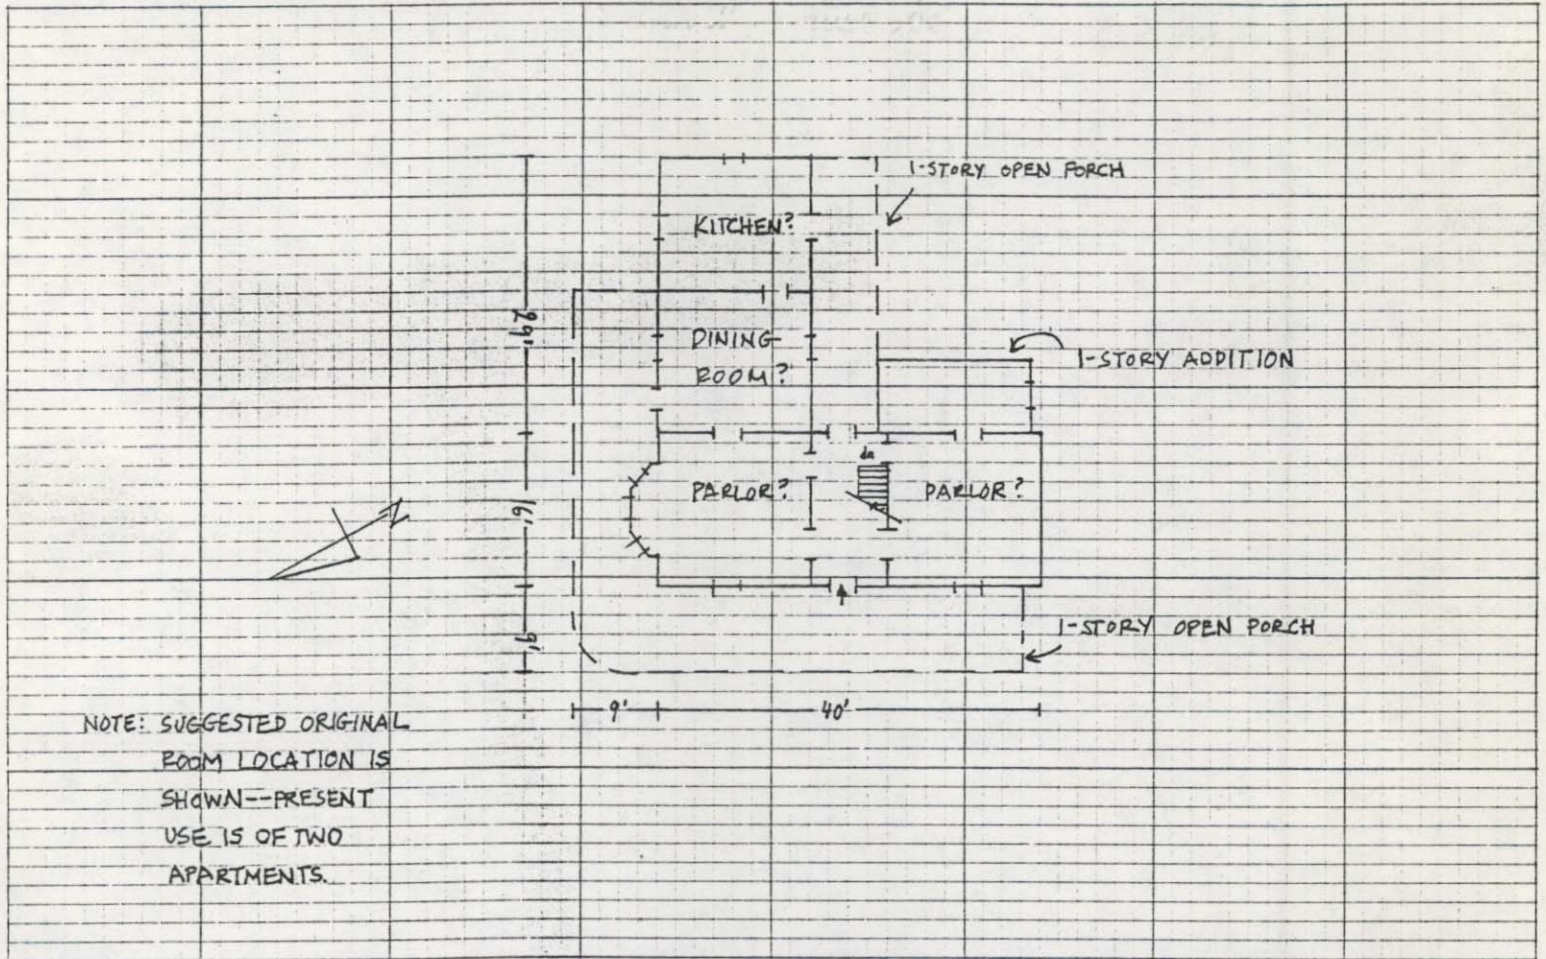 1-STORY OPEN PORCH
KITCHEN?
29'
DINING
ROOM?
1-STORY ADDITION
dn
16'
PARLOR?
PARLOR?
N
9'
1-STORY OPEN PORCH
9'
40'
NOTE: SUGGESTED ORIGINAL
ROOM LOCATION IS
SHOWN--PRESENT
USE IS OF TWO
APARTMENTS.